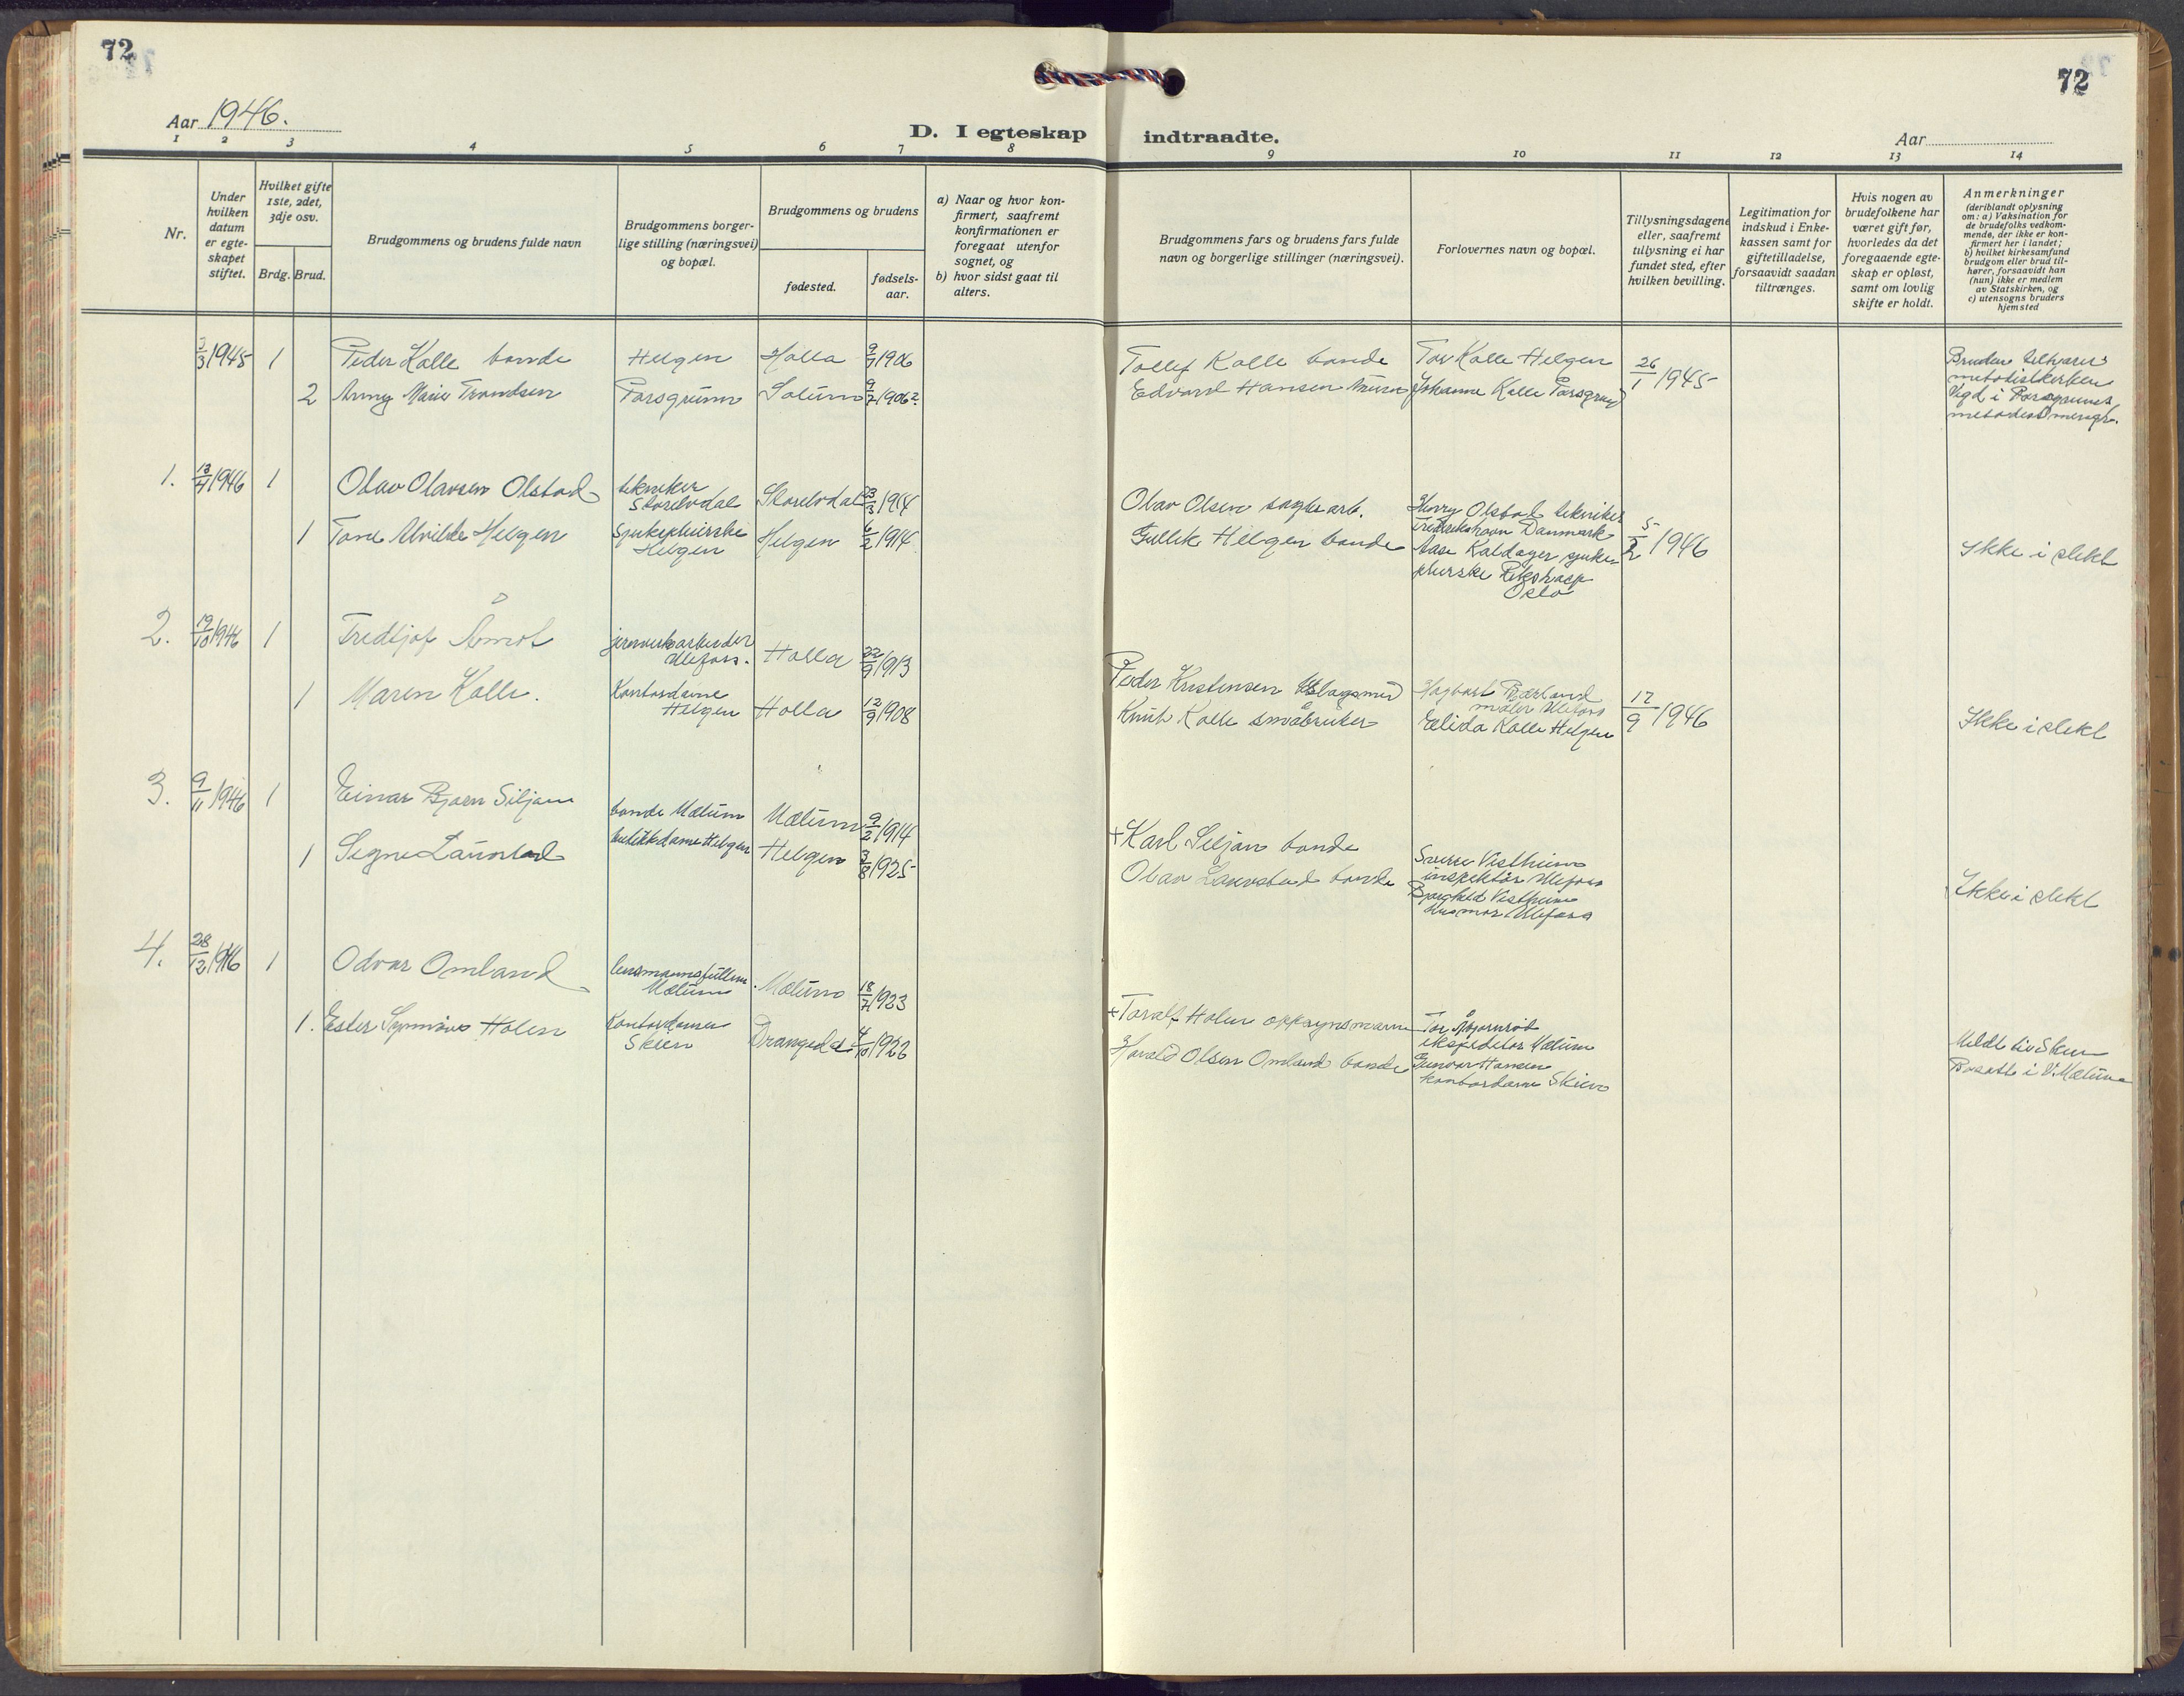 72
72
Aar 1946.
D. I egteskap indtraadte.
Aar
1 2 3 4 5 6 7 8 9 10 11 12 13 14
Nr.
Under hvilken datum er egte-skapet stiftet.
Hvilket gifte 1ste, 2det, 3dje osv.
Brdg. Brud.
Brudgommens og brudens fulde navn
Brudgommens borger-lige stilling (næringsvei) og bopæl.
Brudgommens og brudens
fødested.
fødsels-aar.
a) Naar og hvor kon-firmert, saafremt konfirmationen er foregaat utenfor sognet, og
b) hvor sidst gaat til alters.
Brudgommens fars og brudens fars fulde navn og borgerlige stillinger (næringsvei).
Forlovernes navn og bopæl.
Tillysningsdagene eller, saafremt tillysning ei har fundet sted, efter hvilken bevilling.
Legitimation for indskud i Enke-kassen samt for giftetilladelse, forsaavidt saadan tiltrænges.
Hvis nogen av brudefolkene har været gift før, hvorledes da det foregaaende egte-skap er opløst, samt om lovlig skifte er holdt.
Anmerkninger
(deriblandt oplysning om: a) Vaksination for de brudefolks vedkom-mende, der ikke er kon-firmert her i landet; b) hvilket kirkesamfund brudgom eller brud til-hører, forsaavidt han (hun) ikke er medlem av Statskirken, og c) utensogns bruders hjemsted
3/3 1945 1 Peder Kolle bonde Helgen Holla 9/7 1906 Tollef Kolle bonde Tor Kolle Helgen 26/1 1945
2 Anny Marie Trondsen Porsgrunn Solum 9/7 1906? Edvard Hansen Johanne Kolle Porsgrunn
Bruden tilhører
metodistkirken
Vigd i Porsgrunns
metodistmenigh.
1. 13/4 1946 1 Olav Olavsen Olstad tekniker
Skorelvdal Skorelvdal 23/3 1914 Olav Olsen sagbr.arb. Henry Olstad tekniker
Fredrikshavn Danmark
1 Tone Alvilde Helgen Sjukepleierske
Helgen Helgen 6/2 1914 Gullek Helgen bonde Aase Kaldager sjuke-
pleierske Rikshosp.
Oslo 5/2 1946 Ikke i slekt
2. 19/10 1946 1 Fredtjof Åmot jernverksarbeider
Ulefoss. Holla 22/9 1913 Peder Kristensen Hagbart Bærland
maler Ulefoss
1 Maren Kolle. Kontordame
Helgen Holla 12/9 1908 Knut Kolle småbruker Elida Kolle Helgen 17/9 1946 Ikke i slekt
3. 9/11 1946 1 Einar Bjorn Siljan bonde Mælum Mælum 9/2 1914 + Karl Siljan bonde Sverre Visthum
inspektør Ulefoss
1 Signe Launstad butikkdame Helgen Helgen 3/8 1925 Olav Launstad bonde Borghild Visthum
Husmor Ulefoss Ikke i slekt
4. 28/12 1946 1 Odvar Omland lensmannsfullm.
Mælum Mælum 18/7 1923 + Toralf Holen oppsynsmann Tor
ekspeditør Mælum
1. Ester Synnøve Holen Kontordame
Skien Drangedal 4/10 1922 Harald Olsen Omland bonde Gunvor Hansen
kontordame Skien Meldt til Skien
Bosatt i V. Mælum